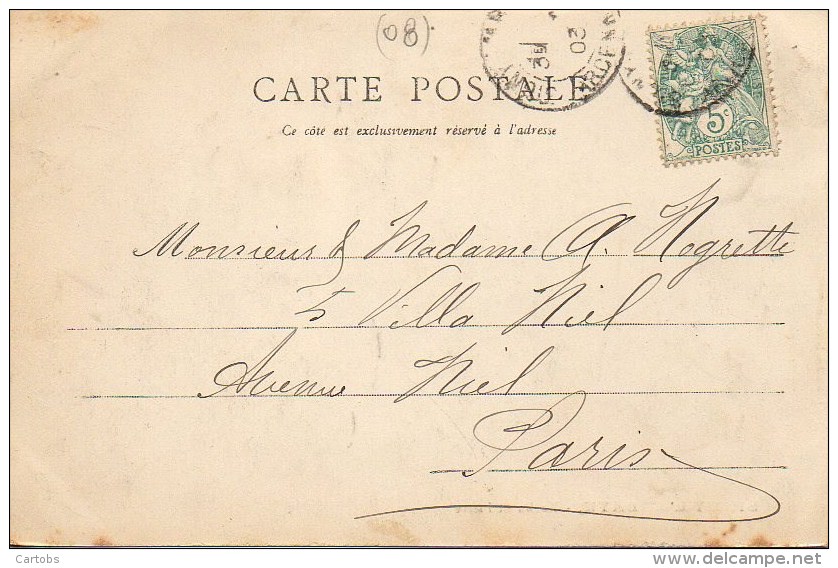 (08)
CARTE POSTALE
Ce côté est exclusivement réservé à l'adresse
03
5c
POSTES
Monsieur & Madame A. Nogrette
5 Villa Niel
Avenue Niel
Paris
Cartobs
delcampe.net